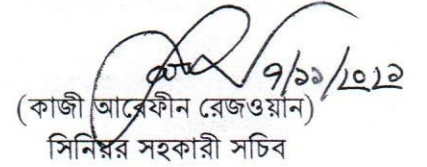 ৭/১১/২০২১
(কাজী আরেফীন রেজওয়ান)
সিনিয়র সহকারী সচিব